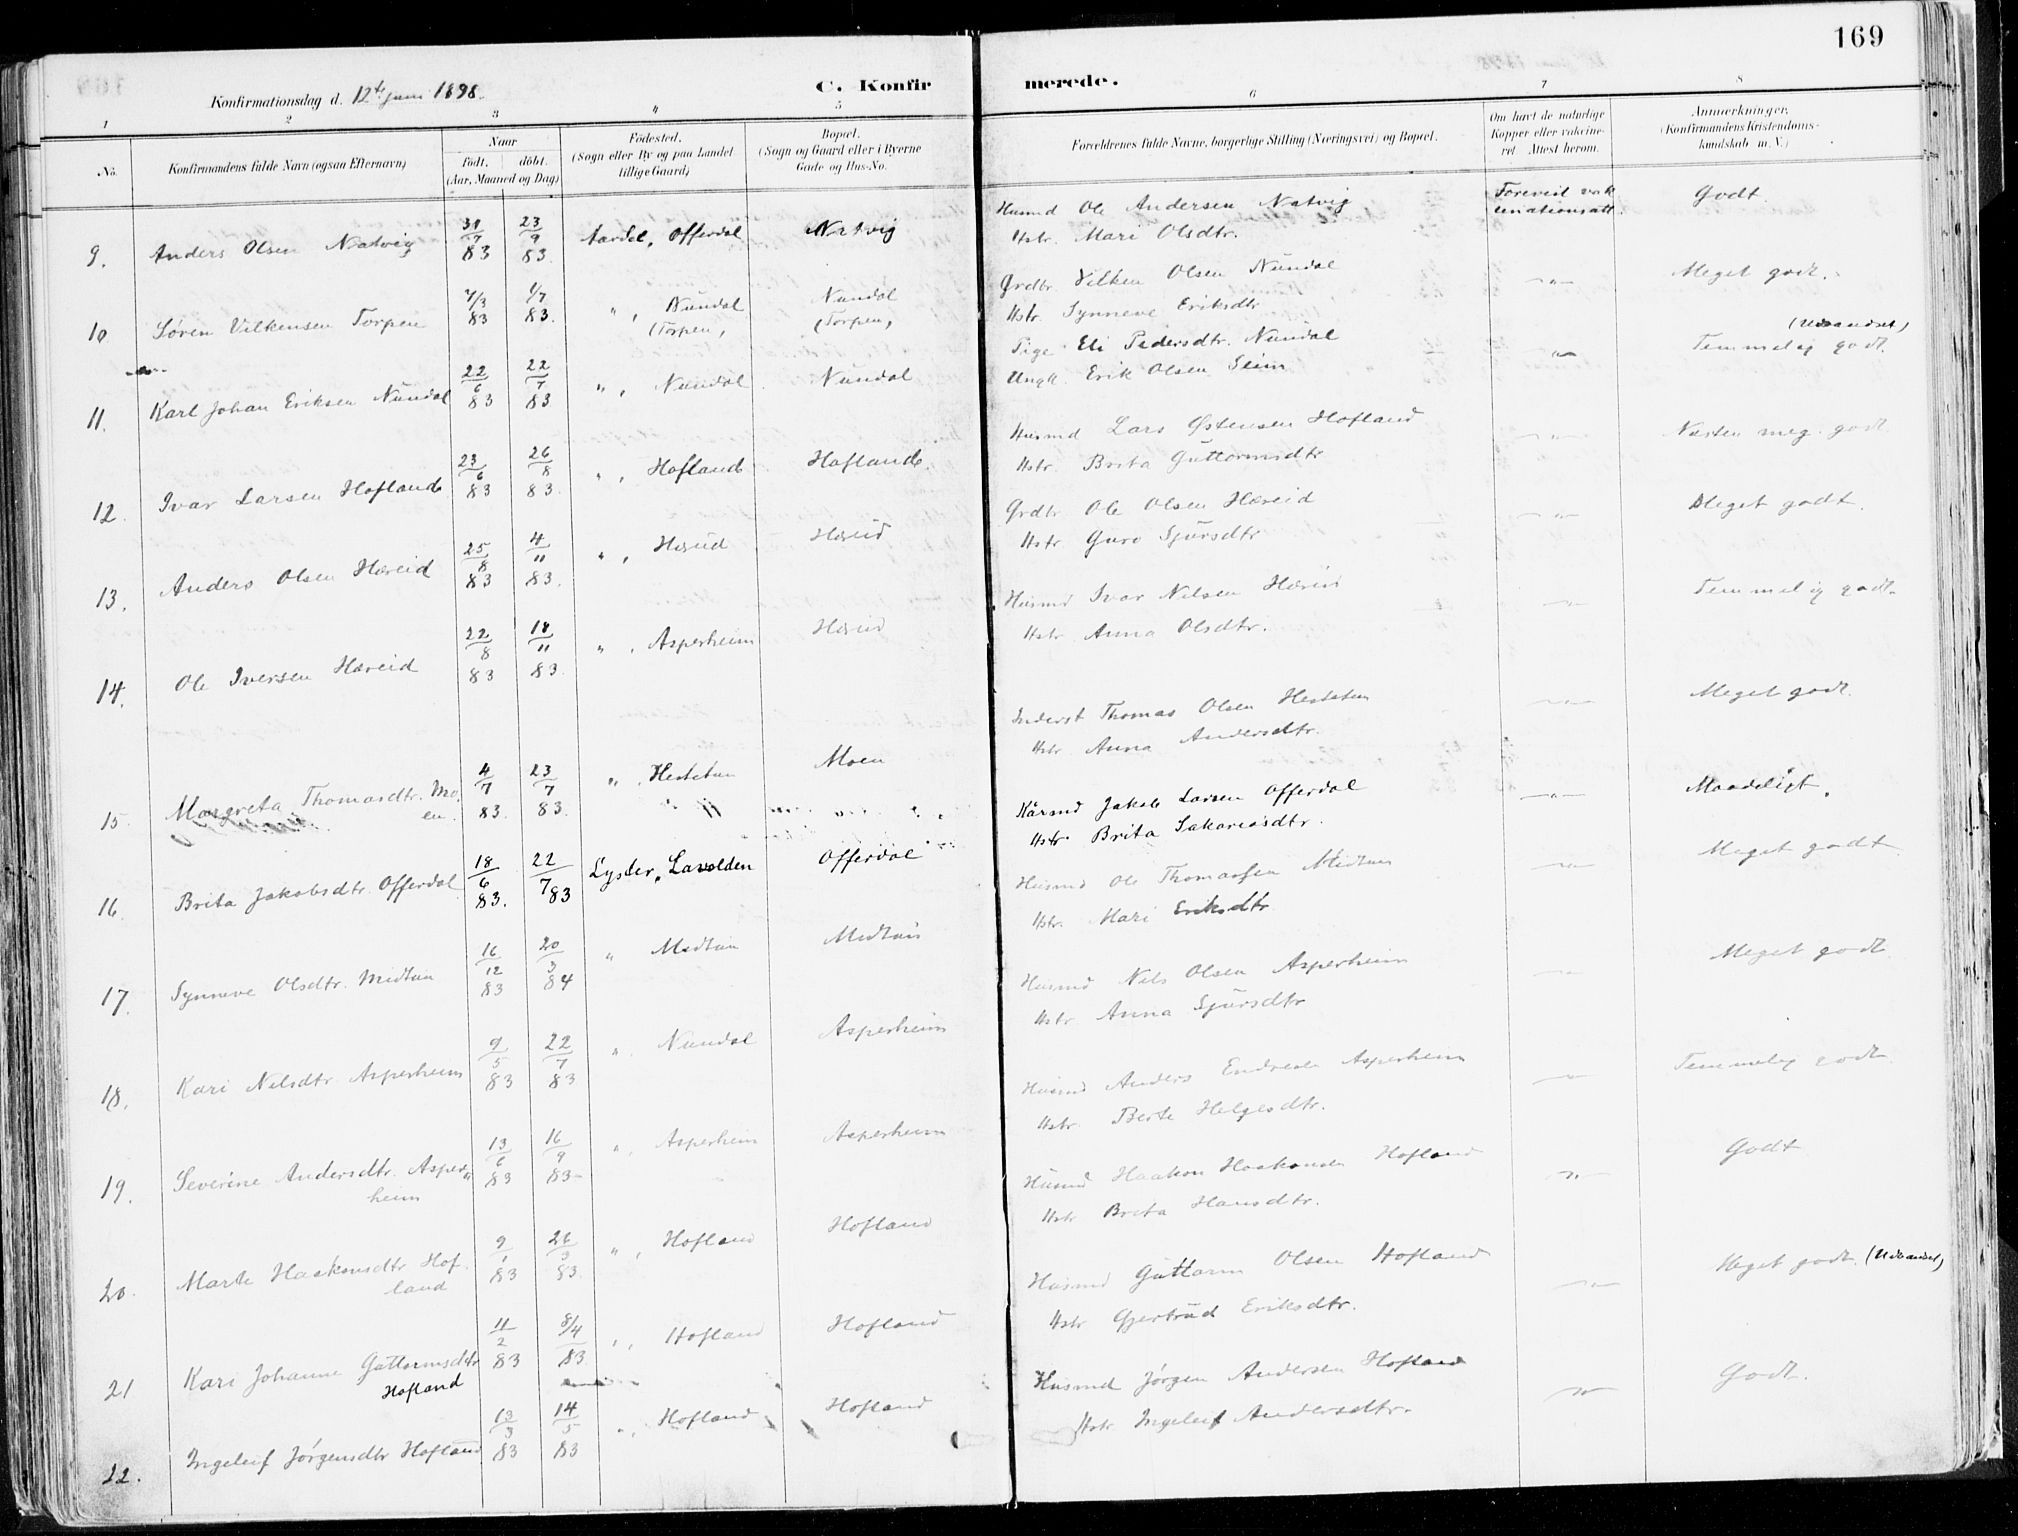 169
Konfirmationsdag d. 12te juni 1898.
C. Konfirmerede.
1 2 3 4 5 6 7 8
No.
Konfirmandens fulde Navn (ogsaa Efternavn)
Naar
födt, döbt.
(Aar, Maaned og Dag)
Födested.
(Sogn eller By og paa Landet
tillige Gaard)
Bopæl.
(Sogn og Gaard eller i Byerne
Gade og Hus-No.
Forældrenes fulde Navne, borgerlige Stilling (Næringsvei) og Bopæl.
Om havt de naturlige
Kopper eller vaccine-
ret. Attest herom.
Anmærkninger.
(Konfirmandens Kristendoms-
kundskab m. V.)
9. Anders Olsen Natvig 31/7 83 23/9 83. Aardal, Offerdal Natvig
Husmd Ole Andersen Natvig
Hstr. Mari Olsdtr.
Godt
10 Søren Vilkensen Torpen 7/3 83 1/7 83. " , Nundal (Torpen, Nundal (Torpen,
Grdbr. Vilken Olsen Nundal
Hstr. Synneve Eriksdtr
-"- Meget godt.
11. Karl Johan Eriksen Nundal 22/6 83 22/7 83. " , Nundal Nundal
Pige Eli Pedersdtr. Nundal
Ungk. Erik Olsen Seim
-"- Temmelig godt.
12. Ivar Larsen Hofland 23/6 83 26/8 83. " , Hofland Hofland.
Husmd Lars Østensen Hofland
Hstr. Brita Guttormsdtr
-"- Næsten meg. godt
13. Anders Olsen Hæreid 25/8 83 4/11 83. " , Hæreid Hæreid
Grdbr Ole Olsen Hæreid
Hstr Guro Sjursdtr
-"- Meget godt.
14. Ole Iversen Hæreid 22/8 83 18/11 83. " , Asperheim Hæreid
Husmd Ivar Nilsen Hæreid
Hstr Anna Olsdtr.
-"- Temmelig godt.
15. Margreta Thomasdtr. Mo-
en. 4/7 83. 23/7 83. " , Hestetun Moen
Inderst Thomas Olsen Hestetun
Hstr. Anna Andersdtr.
-"- Meget godt.
16. Brita Jakobsdtr. Offerdal 18/6 83. 22/7 83 Lyster, Offerdal
Kårmd Jakob Larsen Offerdal
Hstr Brita Sakariasdtr.
-"- Maadeligt.
17. Synneve Olsdtr. Midtun 16/12 83 20/3 84 " Midtun Midtun
Husmd Ole Thomassen Midtun
Hstr. Mari Eriksdtr
-"- Meget godt
18. Kari Nilsdtr. Asperheim 9/5 83 22/7 83 " , Nundal Asperheim
Husmd Nils Olsen Asperheim
Hstr. Anna Sjursdtr
-"- Meget godt
19. Severine Andersdtr. Asper-
heim 13/6 83 16/9 83- " , Asperheim Asperheim
Husmd Anders Endresen Asperheim
Hstr. Berte Helgesdtr.
-"- Temmelig godt
20. Marte Haakonsdtr Hof-
land 9/1 83 26/3 83. " , Hofland Hofland
Husmd Haakon Haakonsen Hofland
Hstr Brita Hansdtr.
-"- Godt
21 Kari Johanne Guttormsdtr
Hofland 11/2 83 8/4 83. " , Hofland Hofland
Husmd Guttorm Olsen Hofland
Hstr Gjertrud Eriksdtr.
-"- Meget godt.
22. Ingeleif Jørgensdtr Hofland 13/3 83 14/5 83 " , Hofland Hofland
Husmd Jørgen Andersen Hofland
Hstr Ingeleif Andersdtr.
-"- Godt.